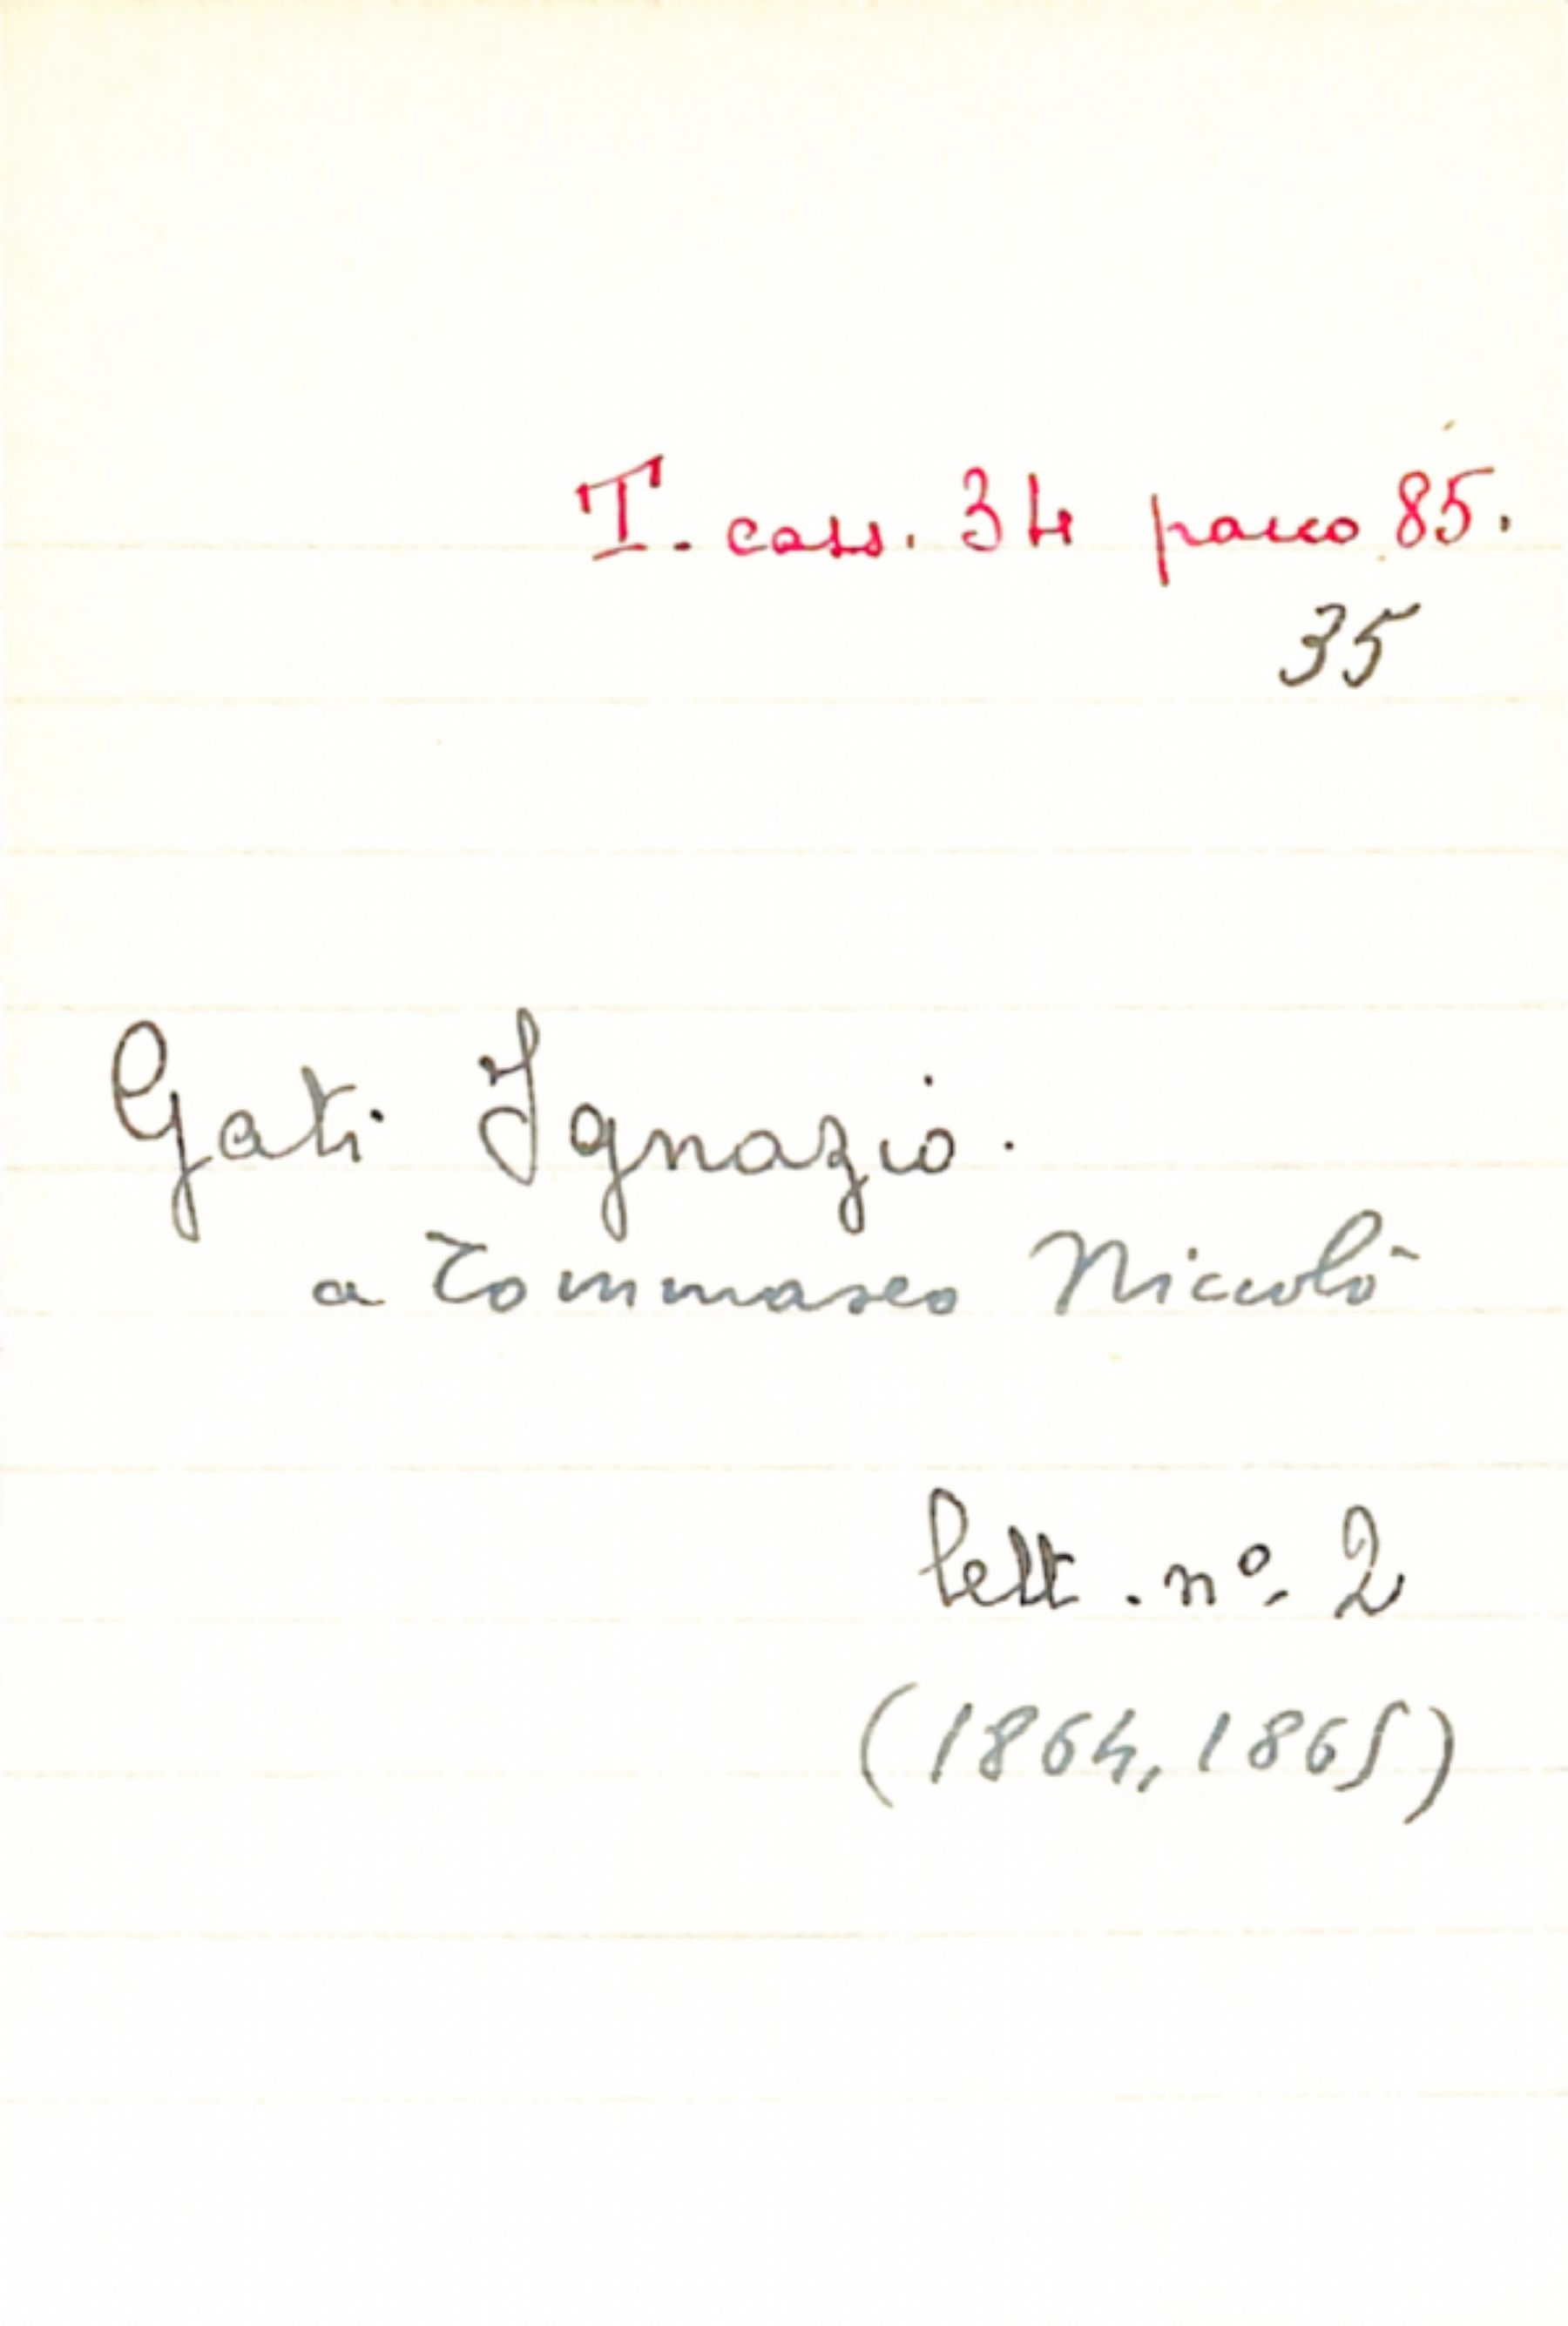 T. cass. 34 pacco 85.
35
Gati Ignazio.
a Tommaseo Niccolò
lett. nº 2
(1864, 1865)